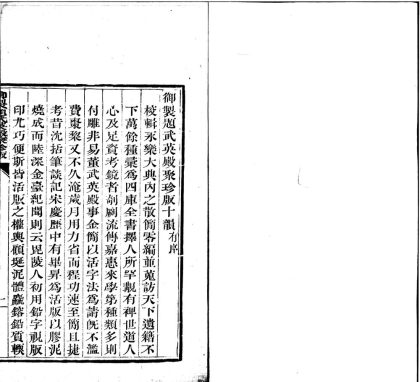 御製題武英殿聚珍版十韻有序
校輯永樂大典內之散簡零編並蒐訪天下遺籍不
下萬餘種彙爲四庫全書擇人所罕覯有裨世道人
心及足資考鏡者剞劂流傳嘉惠來學第種類多則
付雕非易董武英殿事金簡以活字法爲請旣不濫
費棗棃又不久淹歲月用力省而程功速至簡且捷
考昔沈括筆談記宋慶歷中有畢昇爲活版以膠泥
燒成而陸深金臺紀聞則云毘陵人初用鉛字視版
印尤巧便斯皆活版之權輿顧埏泥體麤鎔鉛質輭